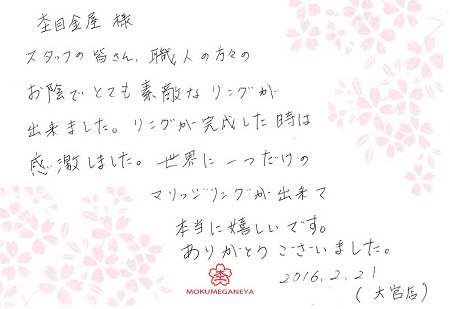 杢目金屋 様
スタッフの皆さん、職人の方々の
お陰でとても素敵なリングが
出来ました。リングが完成した時は
感激しました。世界に一つだけの
マリッジリングが出来て
本当に嬉しいです。
ありがとうございました。
2016.2.21
(大宮店)
MOKUMEGANEYA